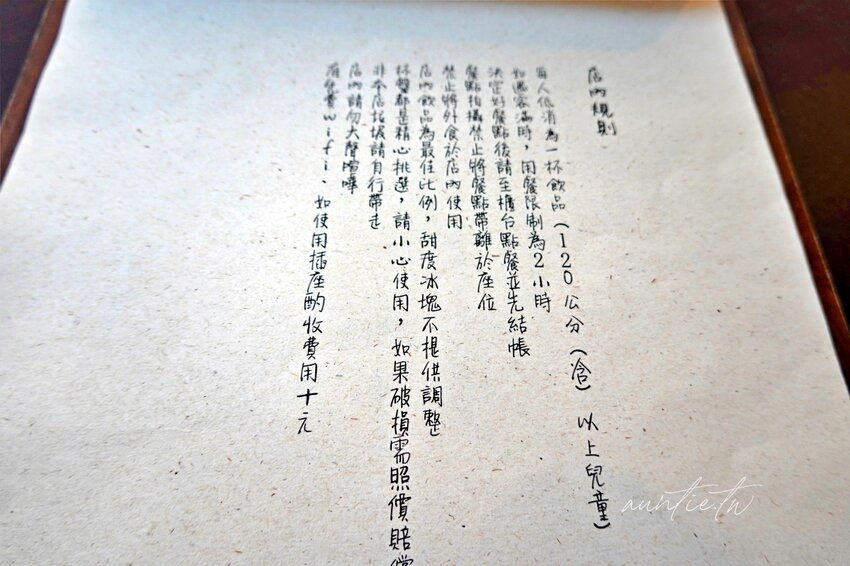 店內規則
每人低消為一杯飲品(120公分(含)以上兒童)
如遇客滿時，用餐限制為2小時
決定好餐點後請至櫃台點餐並先結帳
餐點拍攝禁止將餐點帶離於座位
禁止將外食於店內使用
店內飲品為最佳比例，甜度冰塊不提供調整
杯盤都是精心挑選，請小心使用，如果破損需照價賠償
非本店垃圾請自行帶走
店內請勿大聲喧嘩
有免費wifi、如使用插座酌收費用十元
auntie.tw